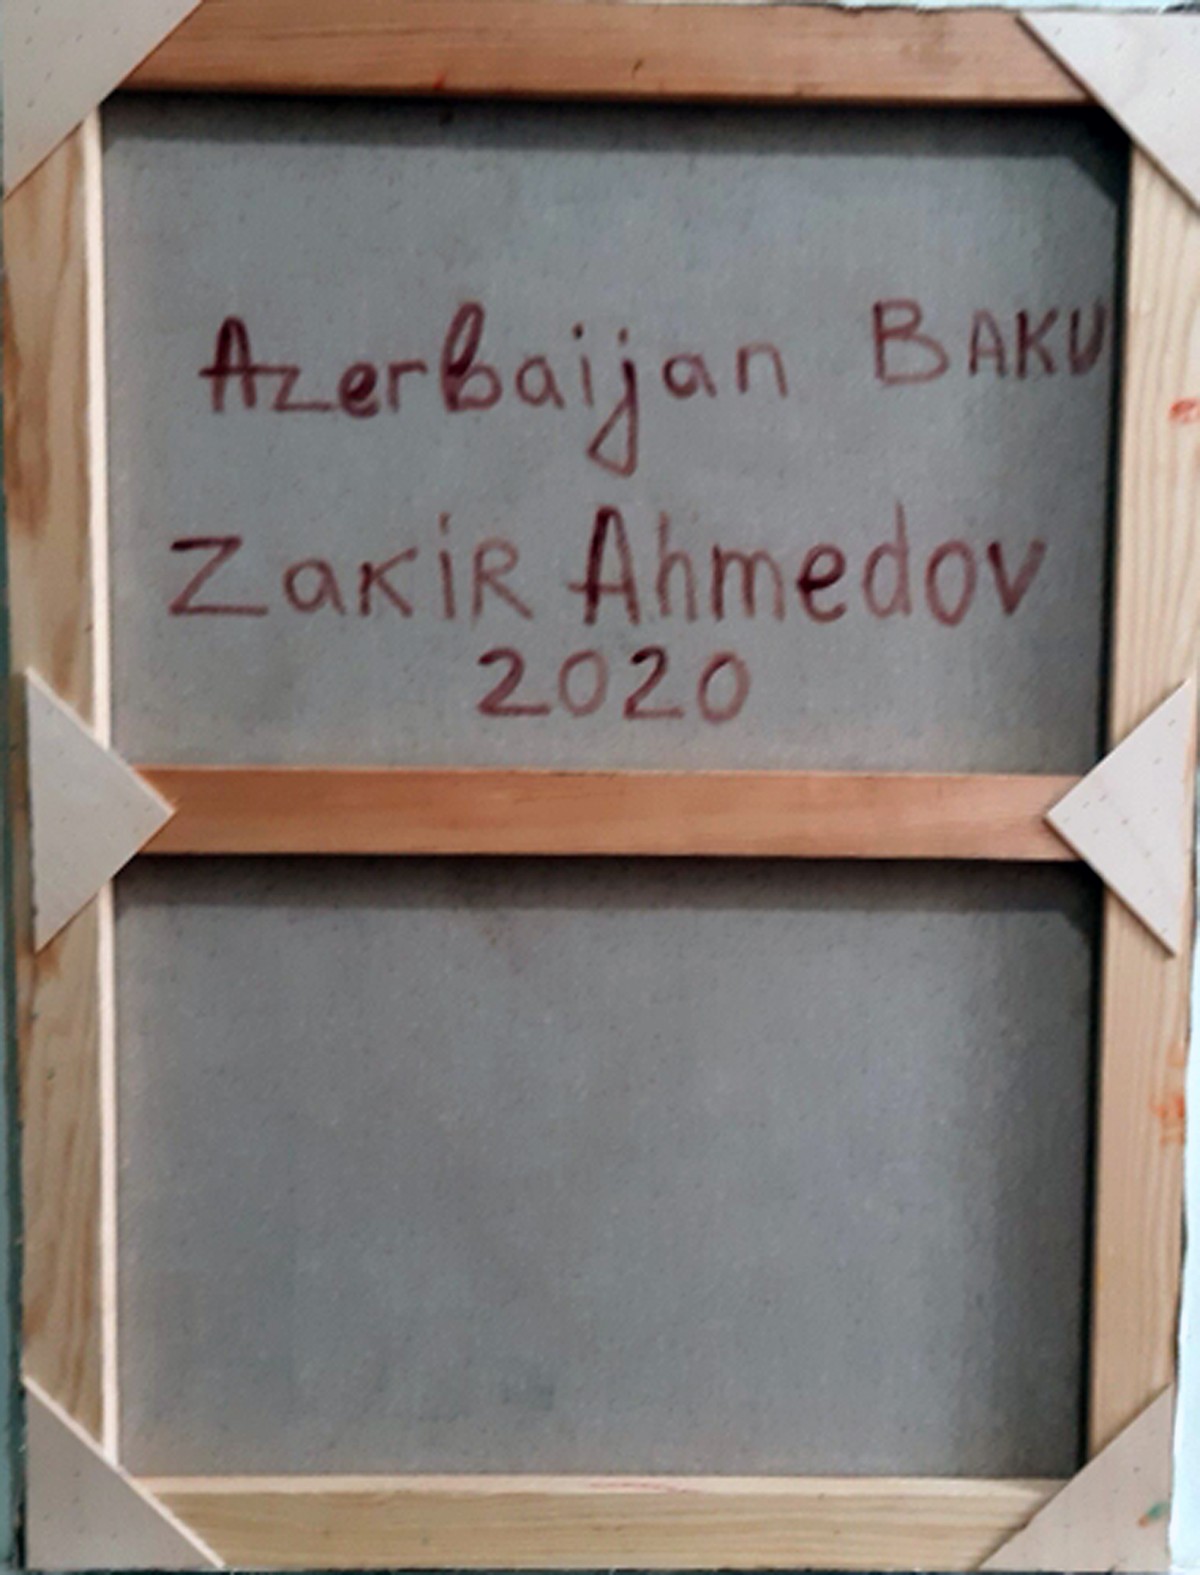 Azerbaijan BAKU
Zakir Ahmedov
2020